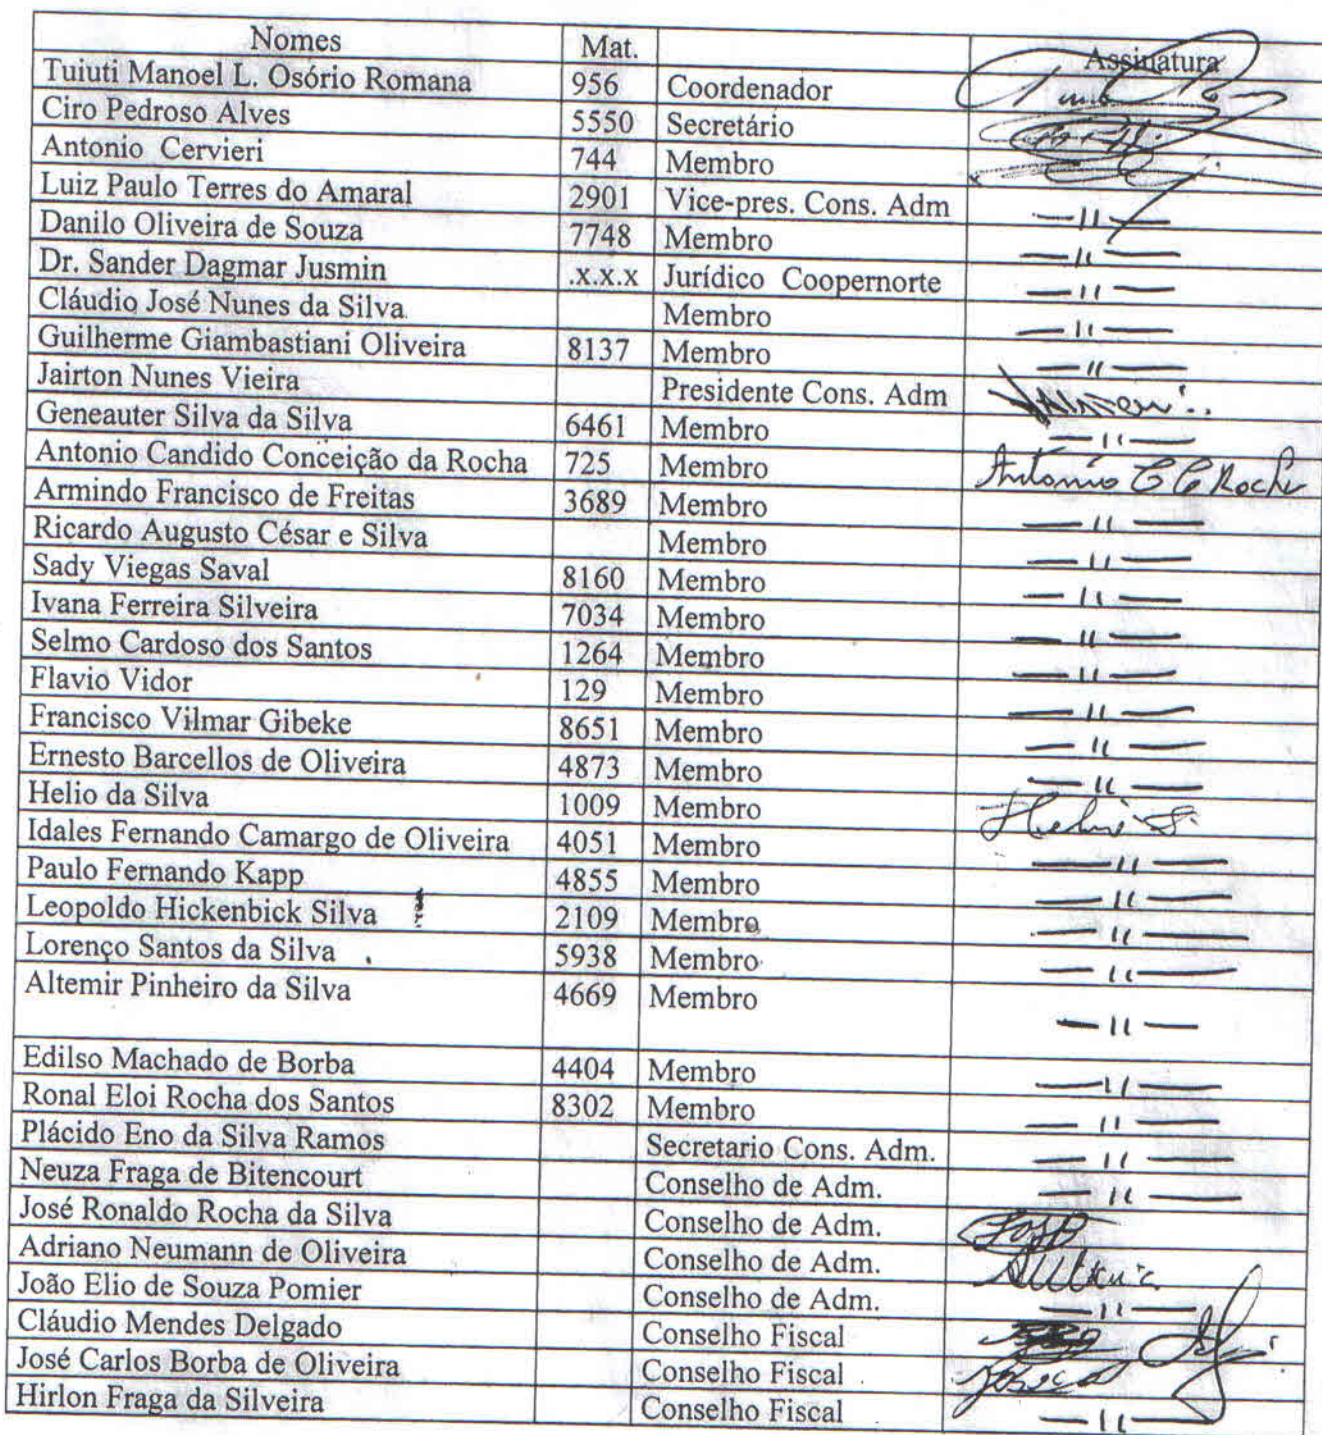 Nomes Mat. Assinatura
Tuiuti Manoel L. Osório Romana 956 Coordenador
Ciro Pedroso Alves 5550 Secretário
Antonio Cervieri 744 Membro
Luiz Paulo Terres do Amaral 2901 Vice-pres. Cons. Adm —11—
Danilo Oliveira de Souza 7748 Membro —11—
Dr. Sander Dagmar Jusmin .x.x.x Jurídico Coopernorte —11—
Cláudio José Nunes da Silva Membro —11—
Guilherme Giambastiani Oliveira 8137 Membro —11—
Jairton Nunes Vieira Presidente Cons. Adm
Geneauter Silva da Silva 6461 Membro —11—
Antonio Candido Conceição da Rocha 725 Membro Antonio C C Rocha
Armindo Francisco de Freitas 3689 Membro —11—
Ricardo Augusto César e Silva Membro —11—
Sady Viegas Saval 8160 Membro —11—
Ivana Ferreira Silveira 7034 Membro —11—
Selmo Cardoso dos Santos 1264 Membro —11—
Flavio Vidor 129 Membro —11—
Francisco Vilmar Gibeke 8651 Membro —11—
Ernesto Barcellos de Oliveira 4873 Membro —11—
Helio da Silva 1009 Membro
Idales Fernando Camargo de Oliveira 4051 Membro —11—
Paulo Fernando Kapp 4855 Membro —11—
Leopoldo Hickenbick Silva 2109 Membro —11—
Lorenço Santos da Silva 5938 Membro —11—
Altemir Pinheiro da Silva 4669 Membro —11—
Edilso Machado de Borba 4404 Membro —11—
Ronal Eloi Rocha dos Santos 8302 Membro —11—
Plácido Eno da Silva Ramos Secretario Cons. Adm. —11—
Neuza Fraga de Bitencourt Conselho de Adm. —11—
José Ronaldo Rocha da Silva Conselho de Adm.
Adriano Neumann de Oliveira Conselho de Adm.
João Elio de Souza Pomier Conselho de Adm. —11—
Cláudio Mendes Delgado Conselho Fiscal
José Carlos Borba de Oliveira Conselho Fiscal
Hirlon Fraga da Silveira Conselho Fiscal —11—